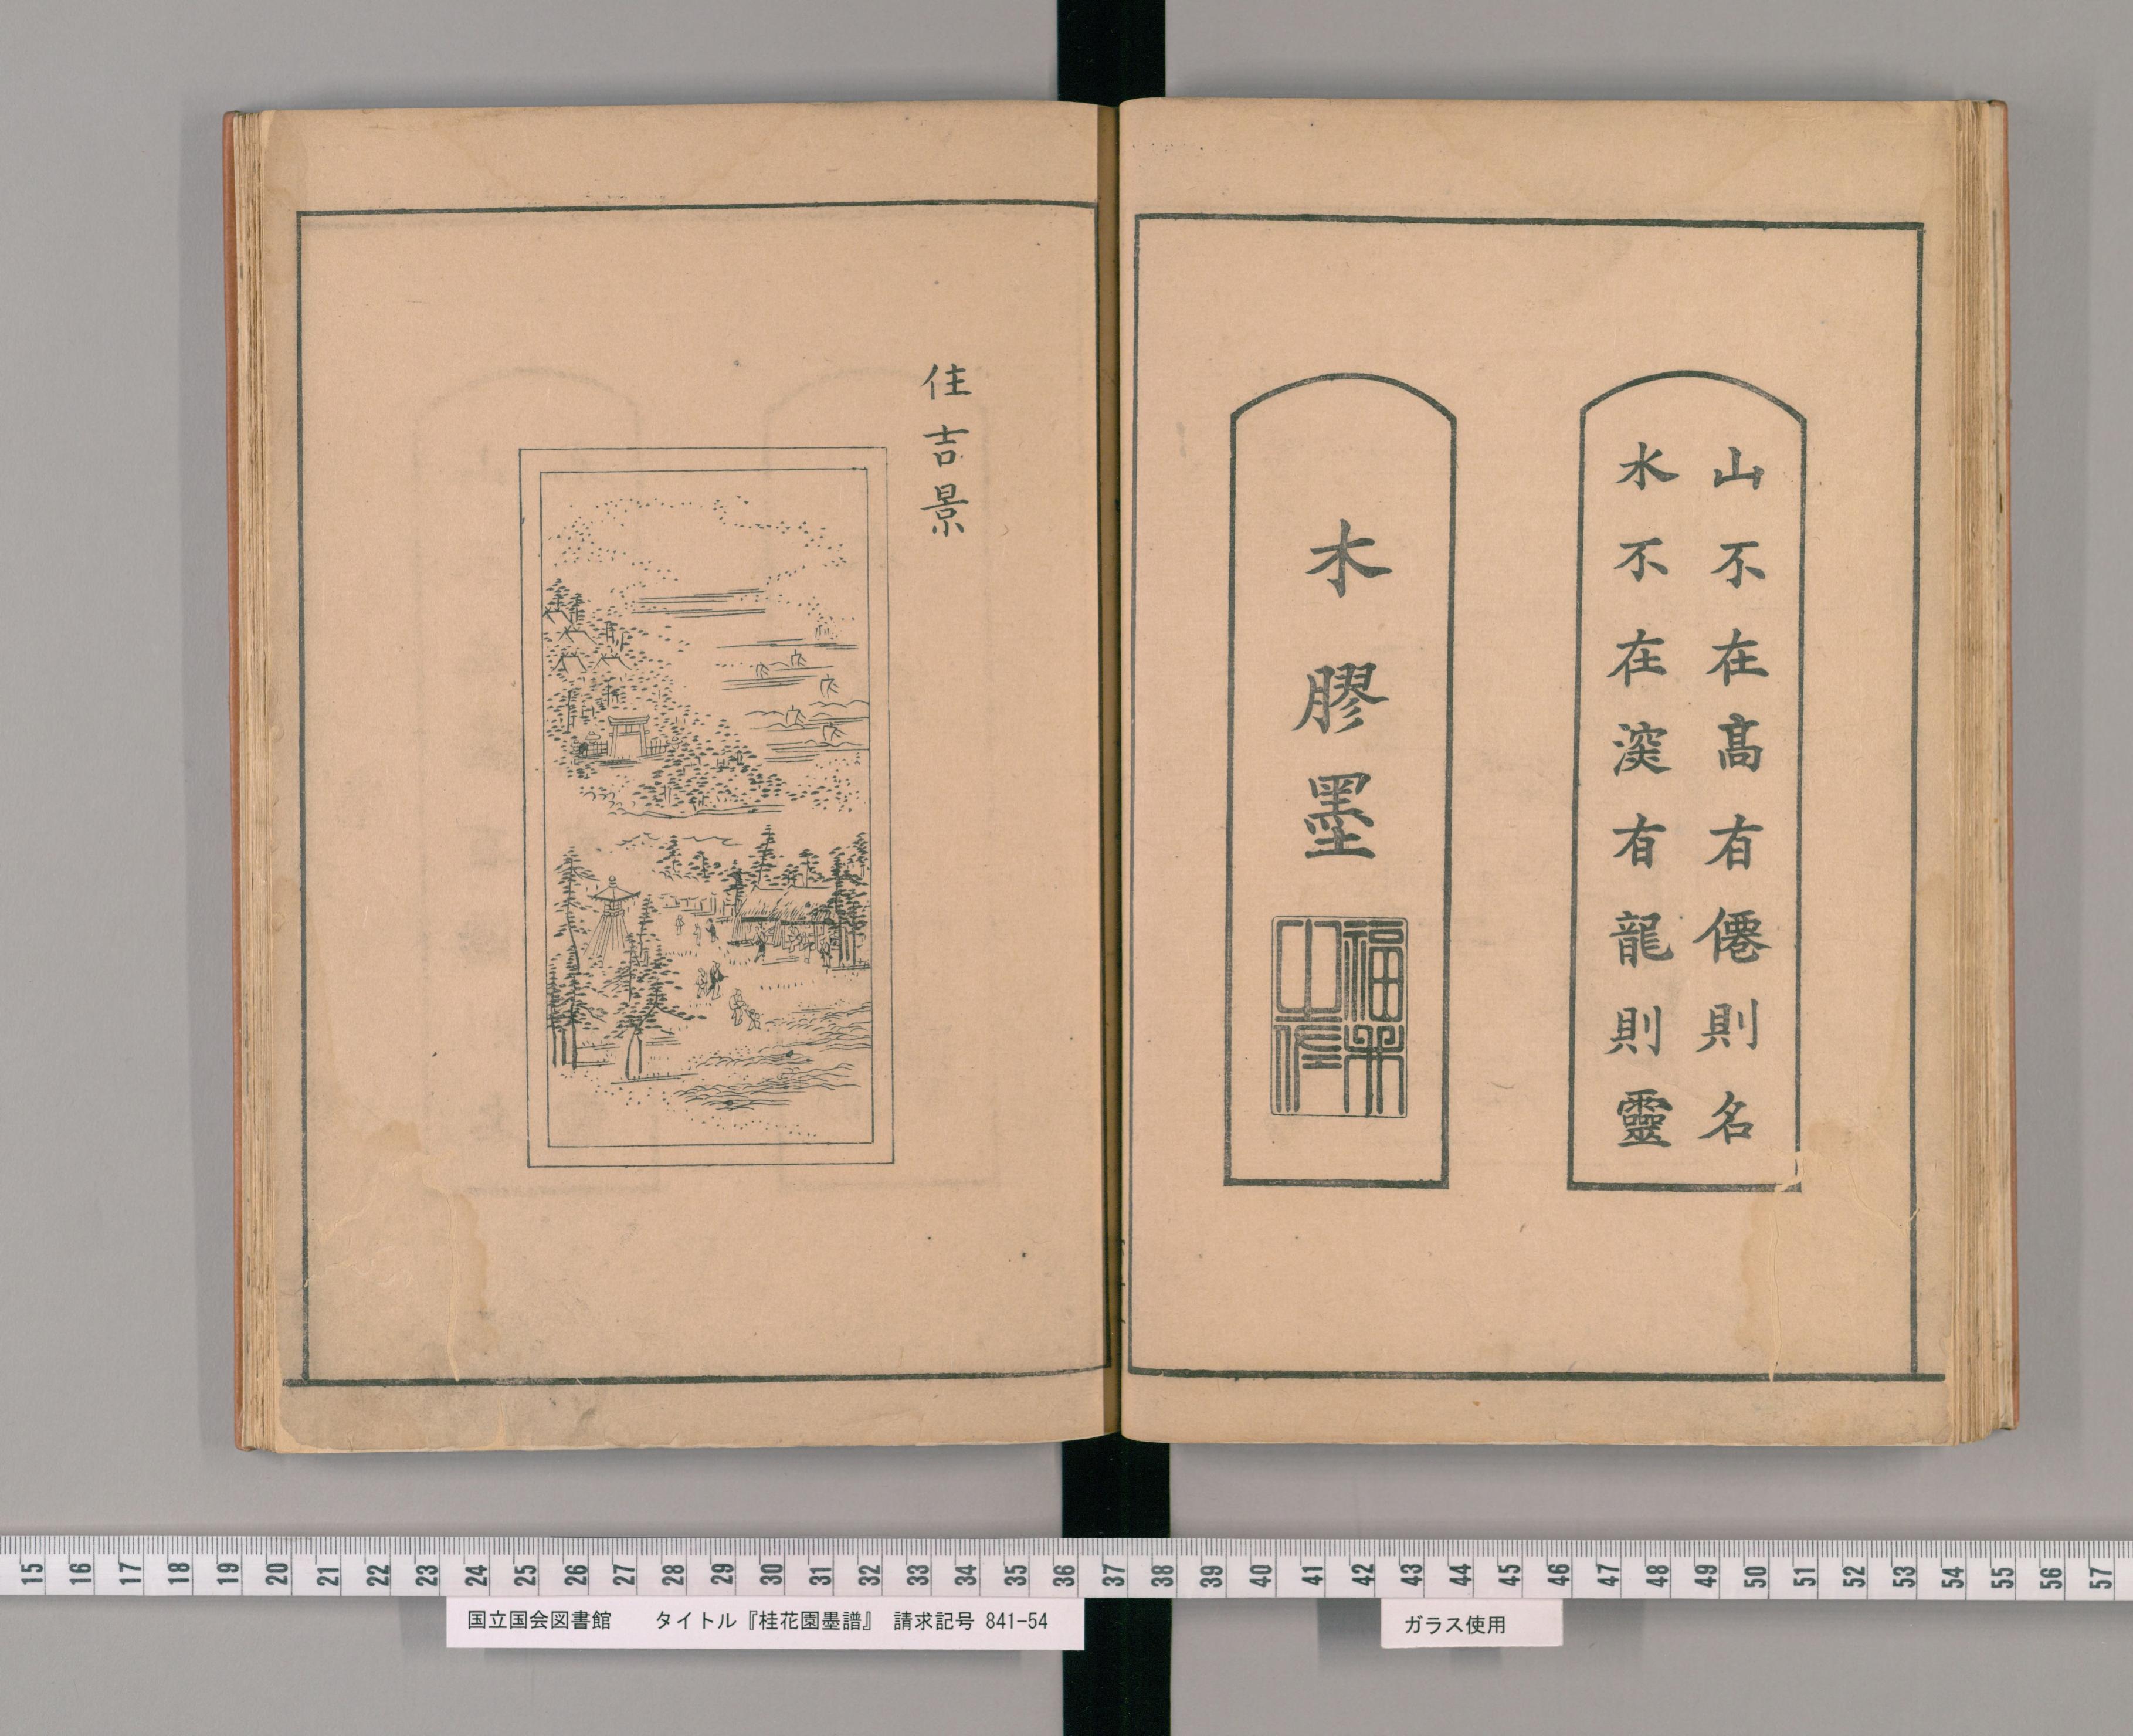 山不在髙有僊則名
水不在湥有龍則靈
木膠墨
福
山作
住吉景
15 16 17 18 19 20 21 22 23 24 25 26 27 28 29 30 31 32 33 34 35 36 37 38 39 40 41 42 43 44 45 46 47 48 49 50 51 52 53 54 55 56 57
国立国会図書館 タイトル『桂花園墨譜』 請求記号 841-54
ガラス使用